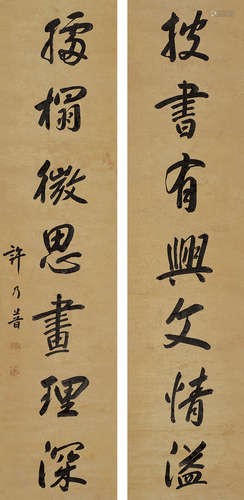 披書有興文情溢
據榻微思畫理深
許乃普